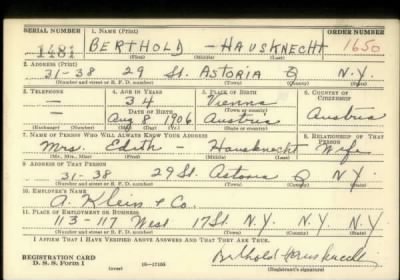 SERIAL NUMBER 1. NAME (Print) ORDER NUMBER
1481 BERTHOLD - HAUSKNECHT 1650
(First) (Middle) (Last)
2. ADDRESS (Print)
31-38 29 St. ASTORIA Q N.Y.
(Number and street or R. F. D. number) (Town) (County) (State)
3. TELEPHONE 4. AGE IN YEARS 5. PLACE OF BIRTH 6. COUNTRY OF CITIZENSHIP
- 34 Vienna
DATE OF BIRTH (Town or county)
- Aug 8 1906 Austria Austria
(Exchange) (Number) (Mo.) (Day) (Yr.) (State or country)
7. NAME OF PERSON WHO WILL ALWAYS KNOW YOUR ADDRESS 8. RELATIONSHIP OF THAT PERSON
Mrs. Edith - Hausknecht Wife
(Mr., Mrs., Miss) (First) (Middle) (Last)
9. ADDRESS OF THAT PERSON
31-38 29 St. Astoria Q N.Y.
(Number and street or R. F. D. number) (Town) (County) (State)
10. EMPLOYER'S NAME
A. Klein & Co.
11. PLACE OF EMPLOYMENT OR BUSINESS
113-117 West 17 St. N.Y. N.Y. N.Y.
(Number and street or R. F. D. number) (Town) (County) (State)
I AFFIRM THAT I HAVE VERIFIED ABOVE ANSWERS AND THAT THEY ARE TRUE.
REGISTRATION CARD
D. S. S. Form 1 (over) 16-17105 Berthold Hausknecht
(Registrant's signature)